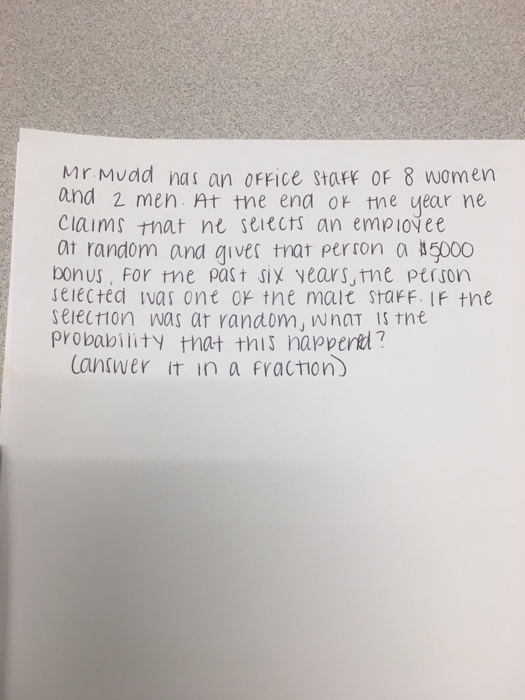 Mr. Mudd has an office staff of 8 women
and 2 men. At the end of the year he
claims that he selects an employee
at random and gives that person a $5000
bonus. For the past six years, the person
selected was one of the male staff. If the
selection was at random, what is the
probability that this happened?
(answer it in a fraction)